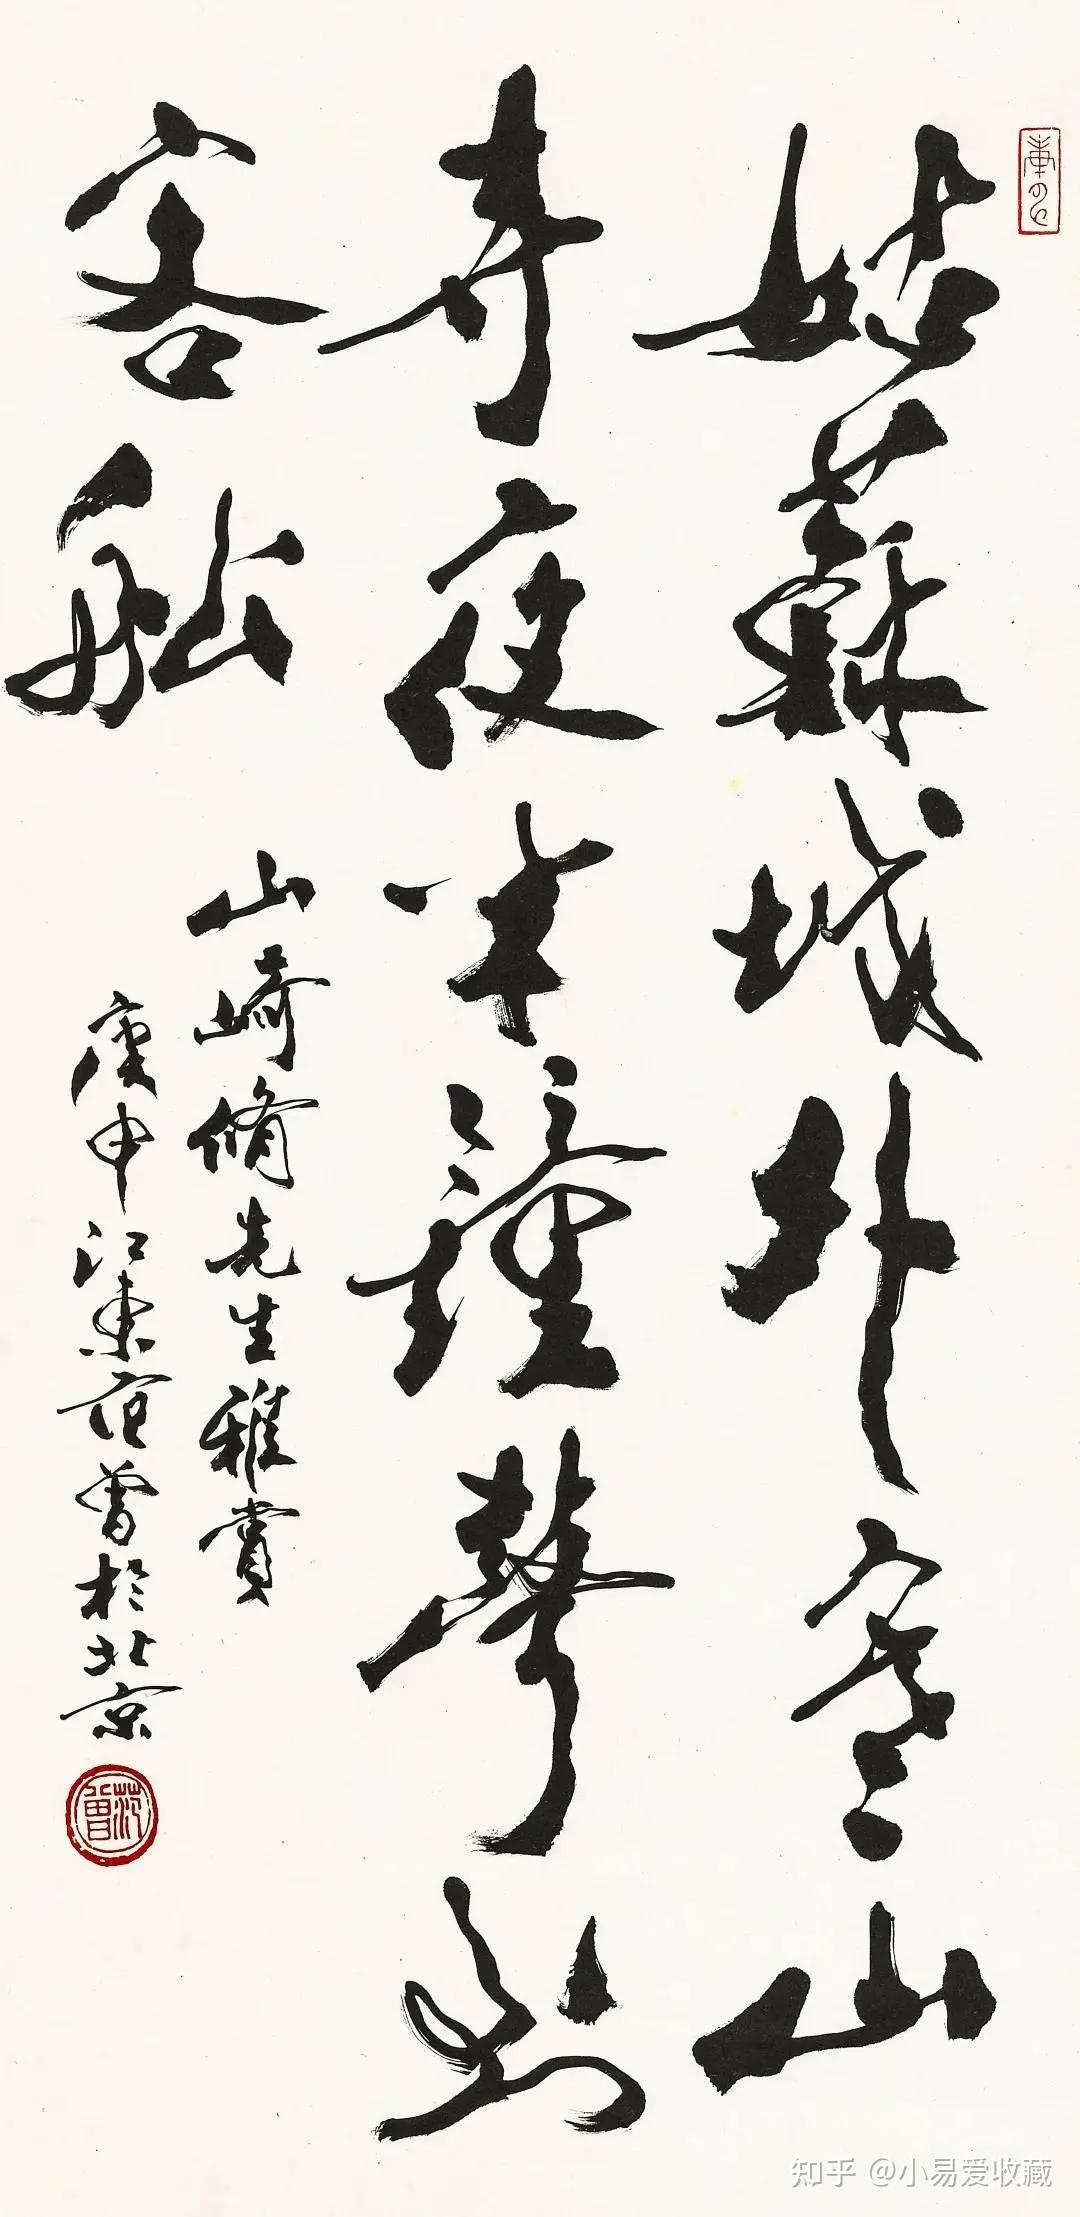 姑蘇城外寒山
寺夜半鐘聲到
客船
山崎脩先生雅賞
庚申江東范曾於北京
范曾
知乎 @小易爱收藏